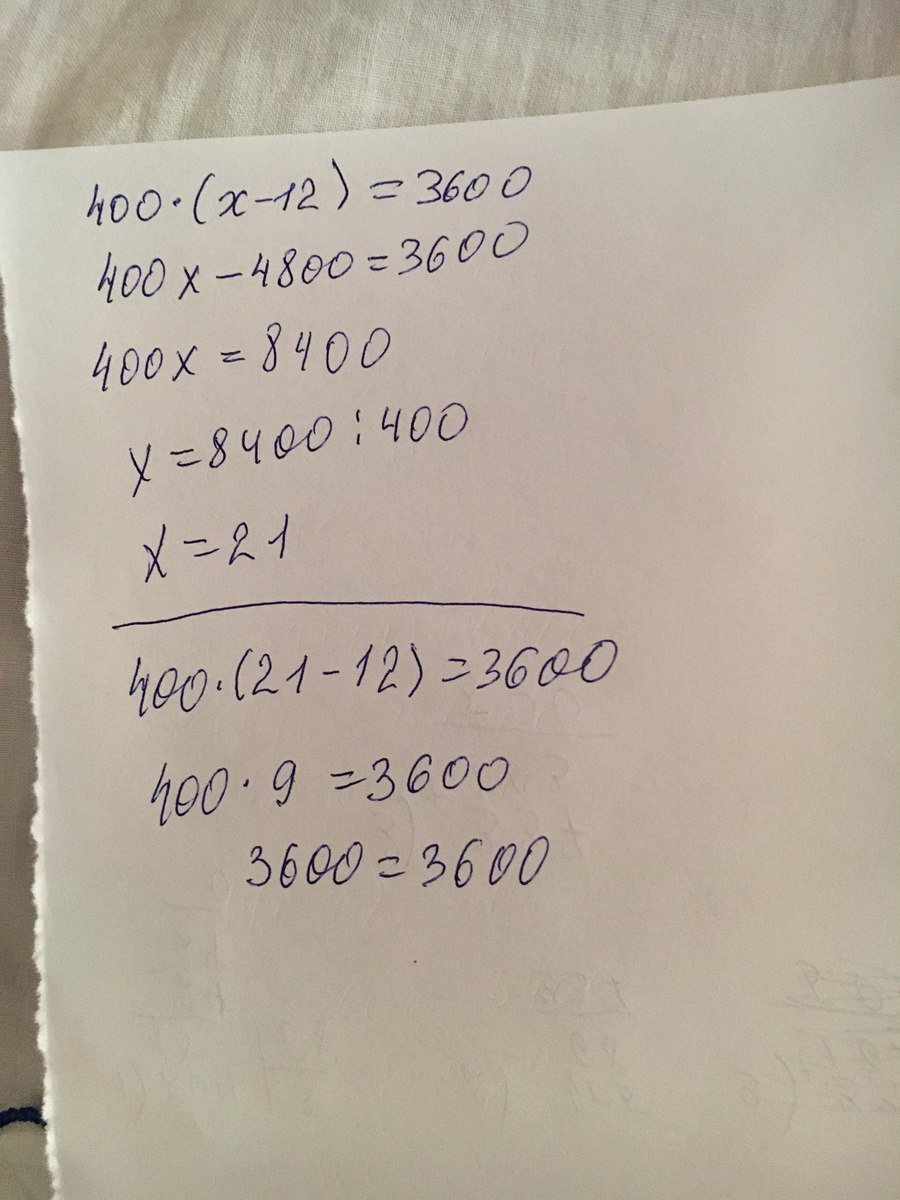 400·(x-12)=3600
400x-4800=3600
400x=8400
x=8400:400
x=21
400·(21-12)=3600
400·9=3600
3600=3600